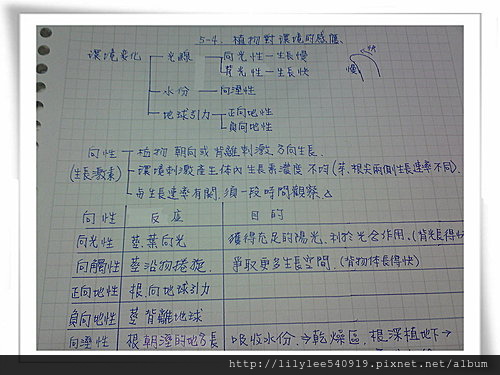 5-4. 植物對環境的感應
環境變化 光線 向光性－生長慢 快
背光性－生長快 慢
水份－向溼性
地球引力 正向地性
負向地性
向性 植物朝向或背離刺激方向生長.
(生長激素) 環境刺激產生體內生長素濃度不均(莖、根尖兩側生長速率不同).
與生長速率有關.須一段時間觀察.△
向性 反應 目的
向光性 莖.葉向光 獲得充足的陽光.利於光合作用.(背光長得快
向觸性 莖沿物捲旋. 爭取更多生長空間.(背物体長得快)
正向地性 根.向地球引力
負向地性 莖背離地球
向溼性 根朝溼的地方長 吸收水份.⇒乾燥區.根深植地下→
http://lilylee540919.pixnet.net/album